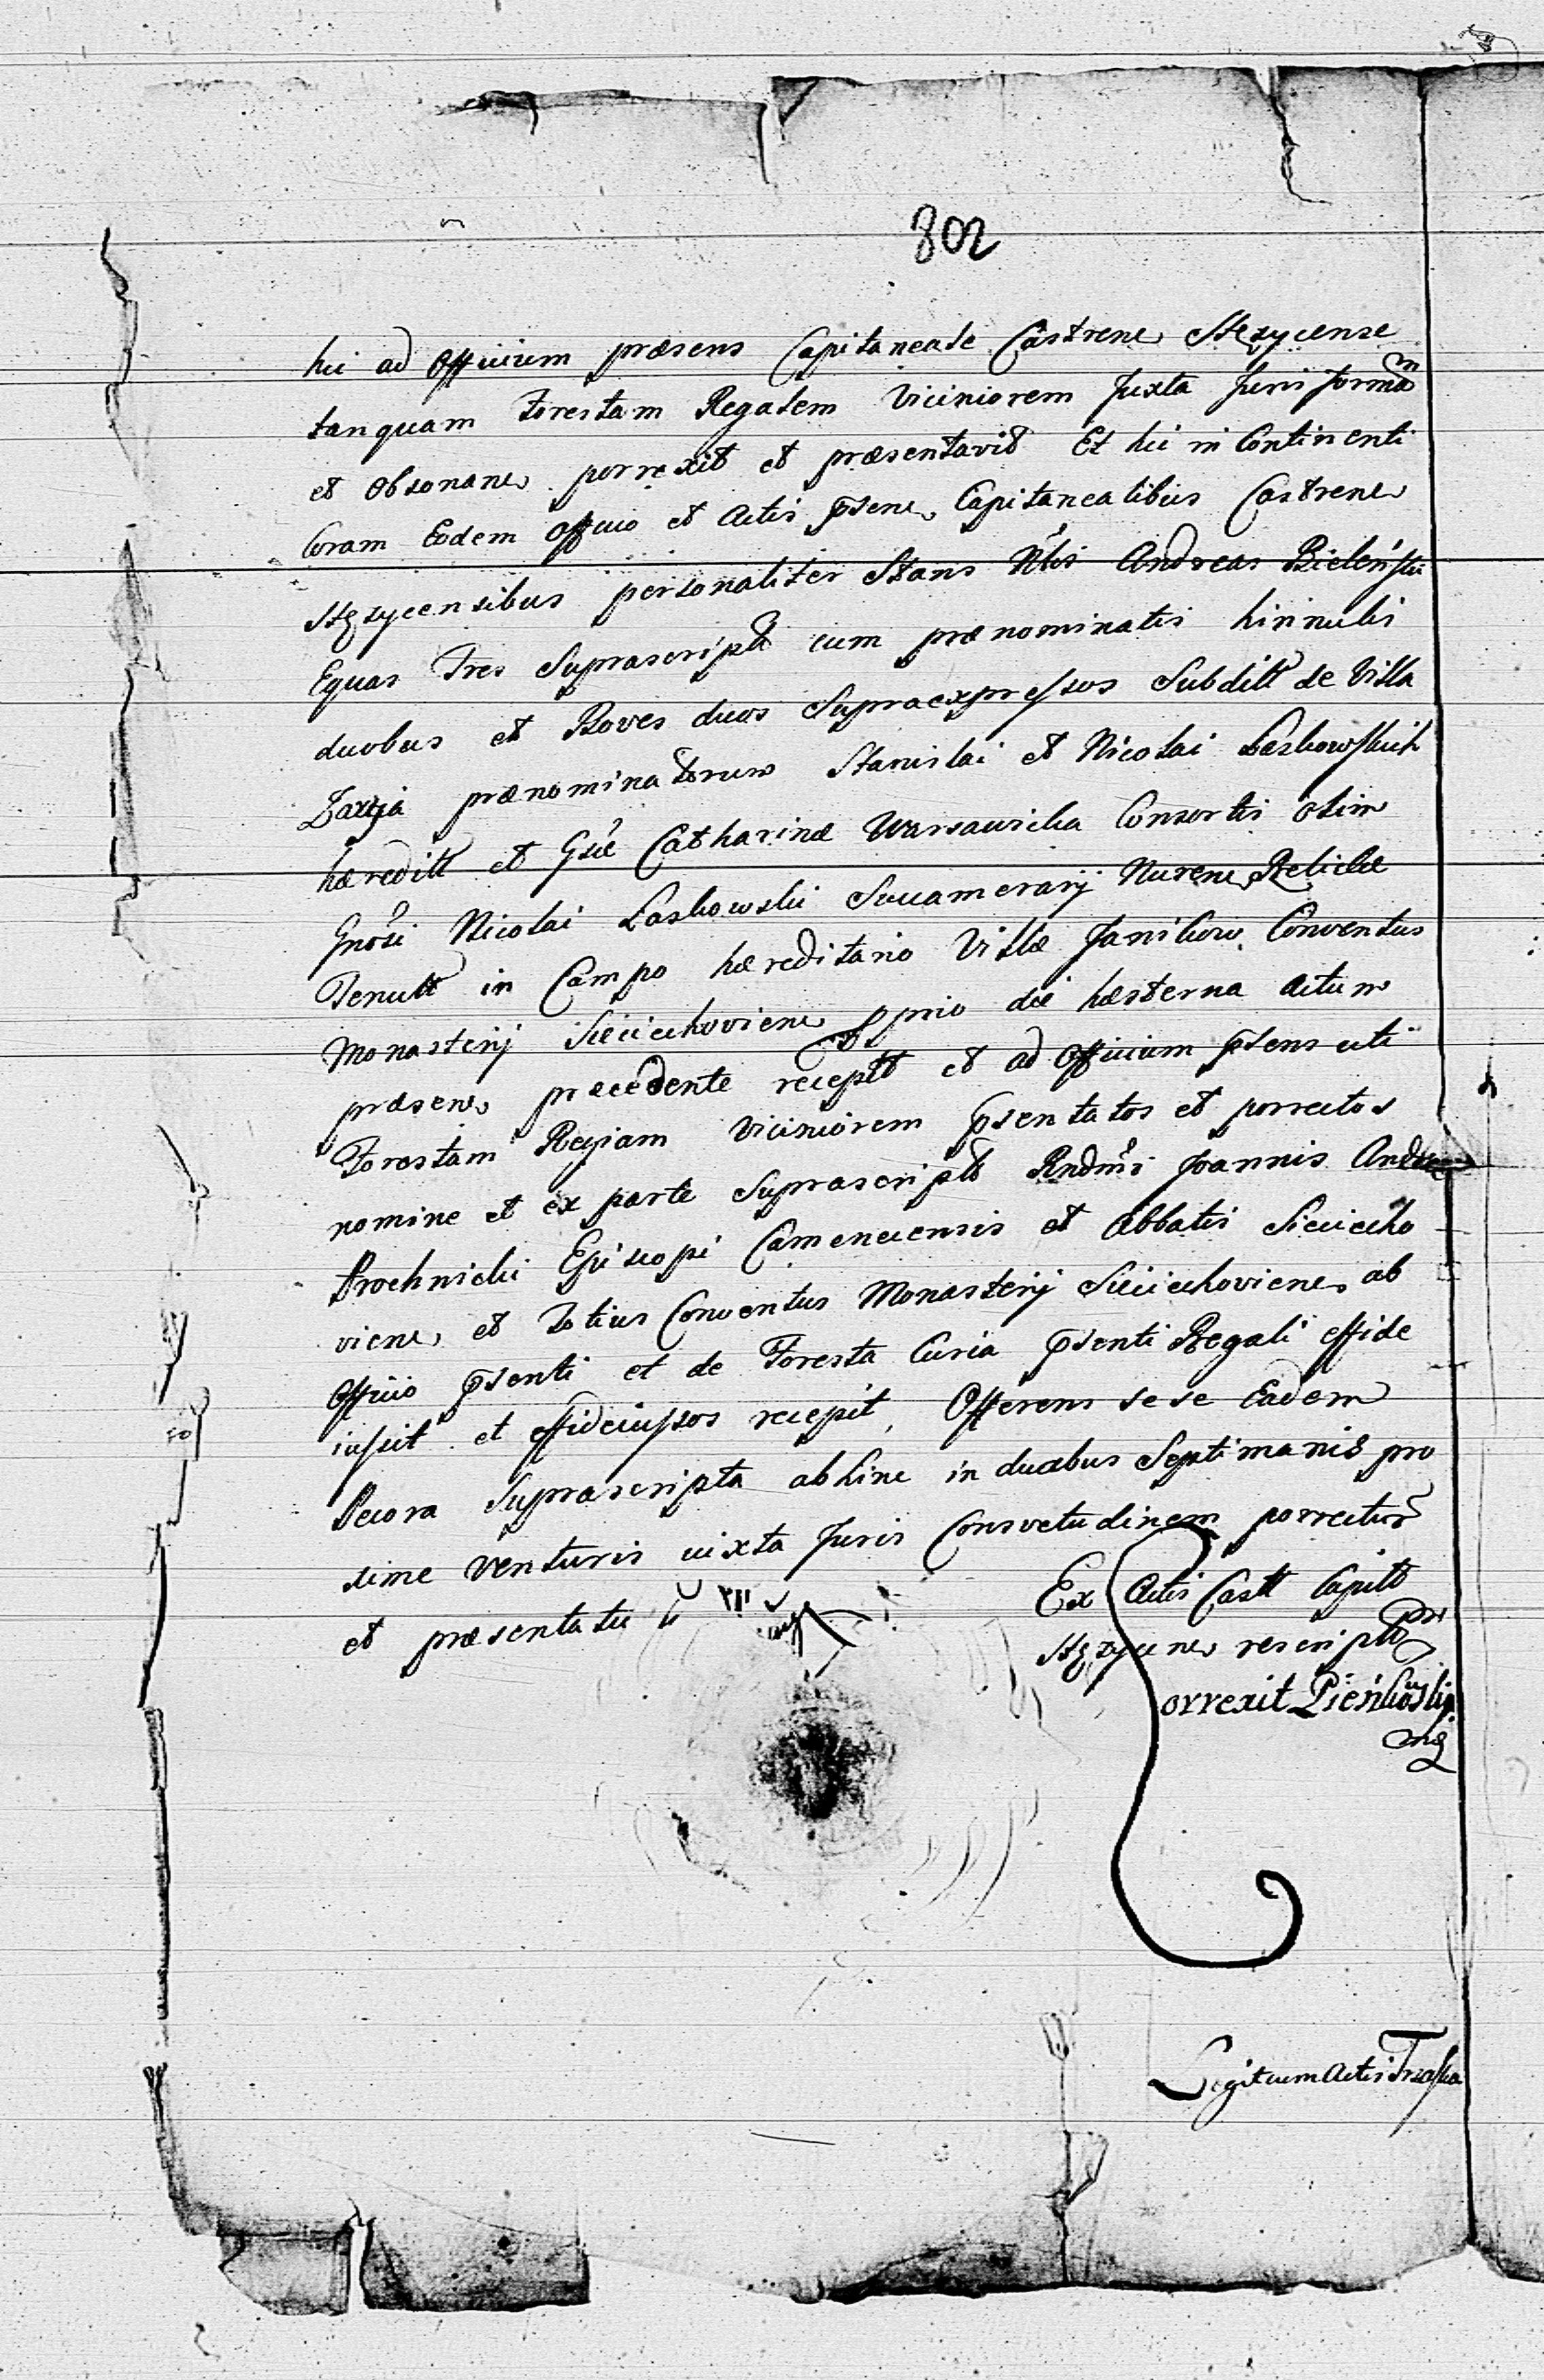 802
hic ad Officium præsens Capitaneale Castrens Stęzycense
tanquam Forestam Regalem Viciniorem Juxta Juris formam
et Obsonans porrexit et præsentavit Et hic in Continenti
Coram Eodem Officio et Actis psens Capitanealibus Castrens
Stęzycensibus personaliter Stans Nblis Andreas Bielenski
Equas Tres Suprascript cum prænominatis hinnulis
duobus et Boves duos Supraexpressos Subditt de Villa
Zaxęja prænominatorum Stanislai et Nicolai Laskowskich
hæreditt et Gsæ Catharinæ Warsawicka Consortis olim
Gnosi Nicolai Laskowski Succamerarij Nurens Relictæ
Tenutt in Campo hæreditario Villæ Janikow Conventus
Monasterij Sieciechoviens pprio die hæsterna Actum
præsens præcedente receptt et ad Officium psens uti
Forestam Regiam viciniorem psentatos et porrectos
nomine et ex parte Suprascriptt Rndmi Joannis Andreæ
Prochnicki Episcopi Camenecensis et Abbatis Sieciecho
viens et Totius Conventus Monasterij Sieciechoviens ab
Officio psenti et de Foresta Curia psenti Regali effide
iussit et effideiussos recepit, Offerens se se Eadem
Pecora Suprascripta abhinc in duabus Septimanis pro
xime venturis iuxta Juris Consvetudinem porrectur
et præsentatu
Ex Actis Castt Capitt
Stęzycens rescriptt
Correxit Pieńkowski
mp
Legit cum Actis Trzaska